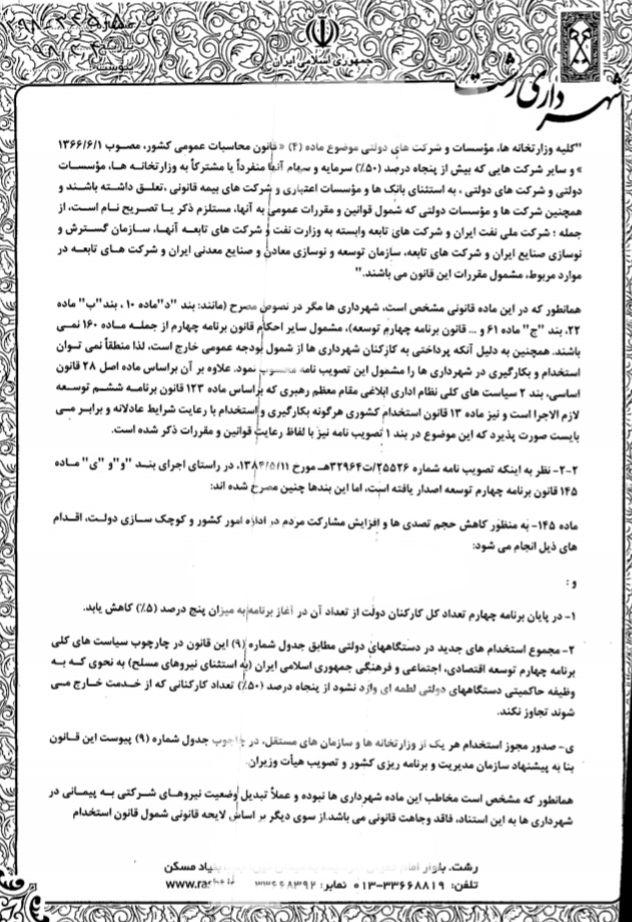 جمهوری اسلامی ایران
شهرداری رشت
"کلیه وزارتخانه ها، مؤسسات و شرکت های دولتی موضوع ماده (۴) «قانون محاسبات عمومی کشور، مصوب ۱۳۶۶/۶/۱
» و سایر شرکت هایی که بیش از پنجاه درصد (۵۰٪) سرمایه و سهام آنها منفرداً یا مشترکاً به وزارتخانه ها، مؤسسات
دولتی و شرکت های دولتی ، به استثنای بانک ها و مؤسسات اعتباری و شرکت های بیمه قانونی ،تعلق داشته باشند و
همچنین شرکت ها و مؤسسات دولتی که شمول قوانین و مقررات عمومی به آنها، مستلزم ذکر یا تصریح نام است، از
جمله ؛ شرکت ملی نفت ایران و شرکت های تابعه وابسته به وزارت نفت و شرکت های تابعه آنها، سازمان گسترش و
نوسازی صنایع ایران و شرکت های تابعه، سازمان توسعه و نوسازی معادن و صنایع معدنی ایران و شرکت های تابعه در
موارد مربوط، مشمول مقررات این قانون می باشند."
همانطور که در این ماده قانونی مشخص است، شهرداری ها مگر در نصوص مصرح (مانند: بند "د"ماده ۱۰ ، بند"ب" ماده
۲۲، بند "ج" ماده ۶۱ و ... قانون برنامه چهارم توسعه)، مشمول سایر احکام قانون برنامه چهارم از جمله ماده ۱۶۰ نمی
باشند. همچنین به دلیل آنکه پرداختی به کارکنان شهرداری ها از شمول بودجه عمومی خارج است، لذا منطقاً نمی توان
استخدام و بکارگیری در شهرداری ها را مشمول این تصویب نامه محسوب نمود. علاوه بر آن براساس ماده اصل ۲۸ قانون
اساسی، بند ۲ سیاست های کلی نظام اداری ابلاغی مقام معظم رهبری که براساس ماده ۱۲۳ قانون برنامه ششم توسعه
لازم الاجرا است و نیز ماده ۱۳ قانون استخدام کشوری هرگونه بکارگیری و استخدام با رعایت شرایط عادلانه و برابر می
بایست صورت پذیرد که این موضوع در بند ۱ تصویب نامه نیز با لفظ رعایت قوانین و مقررات ذکر شده است.
۲-۲- نظر به اینکه تصویب نامه شماره ۲۵۵۲۶/ت۳۲۹۶۴هـ مورخ ۱۳۸۴/۵/۱۱، در راستای اجرای بند "و"و "ی" ماده
۱۴۵ قانون برنامه چهارم توسعه اصدار یافته است، اما این بندها چنین مصرح شده اند:
ماده ۱۴۵- به منظور کاهش حجم تصدی ها و افزایش مشارکت مردم در اداره امور کشور و کوچک سازی دولت، اقدام
های ذیل انجام می شود:
و :
۱- در پایان برنامه چهارم تعداد کل کارکنان دولت از تعداد آن در آغاز برنامه به میزان پنج درصد (۵٪) کاهش یابد.
۲- مجموع استخدام های جدید در دستگاههای دولتی مطابق جدول شماره (۹) این قانون در چارچوب سیاست های کلی
برنامه چهارم توسعه اقتصادی، اجتماعی و فرهنگی جمهوری اسلامی ایران (به استثنای نیروهای مسلح) به نحوی که به
وظیفه حاکمیتی دستگاههای دولتی لطمه ای وارد نشود از پنجاه درصد (۵۰٪) تعداد کارکنانی که از خدمت خارج می
شوند تجاوز نکند.
ی- صدور مجوز استخدام هر یک از وزارتخانه ها و سازمان های مستقل، در چارچوب جدول شماره (۹) پیوست این قانون
بنا به پیشنهاد سازمان مدیریت و برنامه ریزی کشور و تصویب هیأت وزیران.
همانطور که مشخص است مخاطب این ماده شهرداری ها نبوده و عملاً تبدیل وضعیت نیروهای شرکتی به پیمانی در
شهرداری ها به این استناد، فاقد وجاهت قانونی می باشد.از سوی دیگر بر اساس لایحه قانونی شمول قانون استخدام
رشت. بلوار امام بنیاد مسکن
تلفن: ۳۳۶۶۸۸۱۹-۰۱۳ نمابر: ۳۳۶۶۸۳۹۲ www.ra